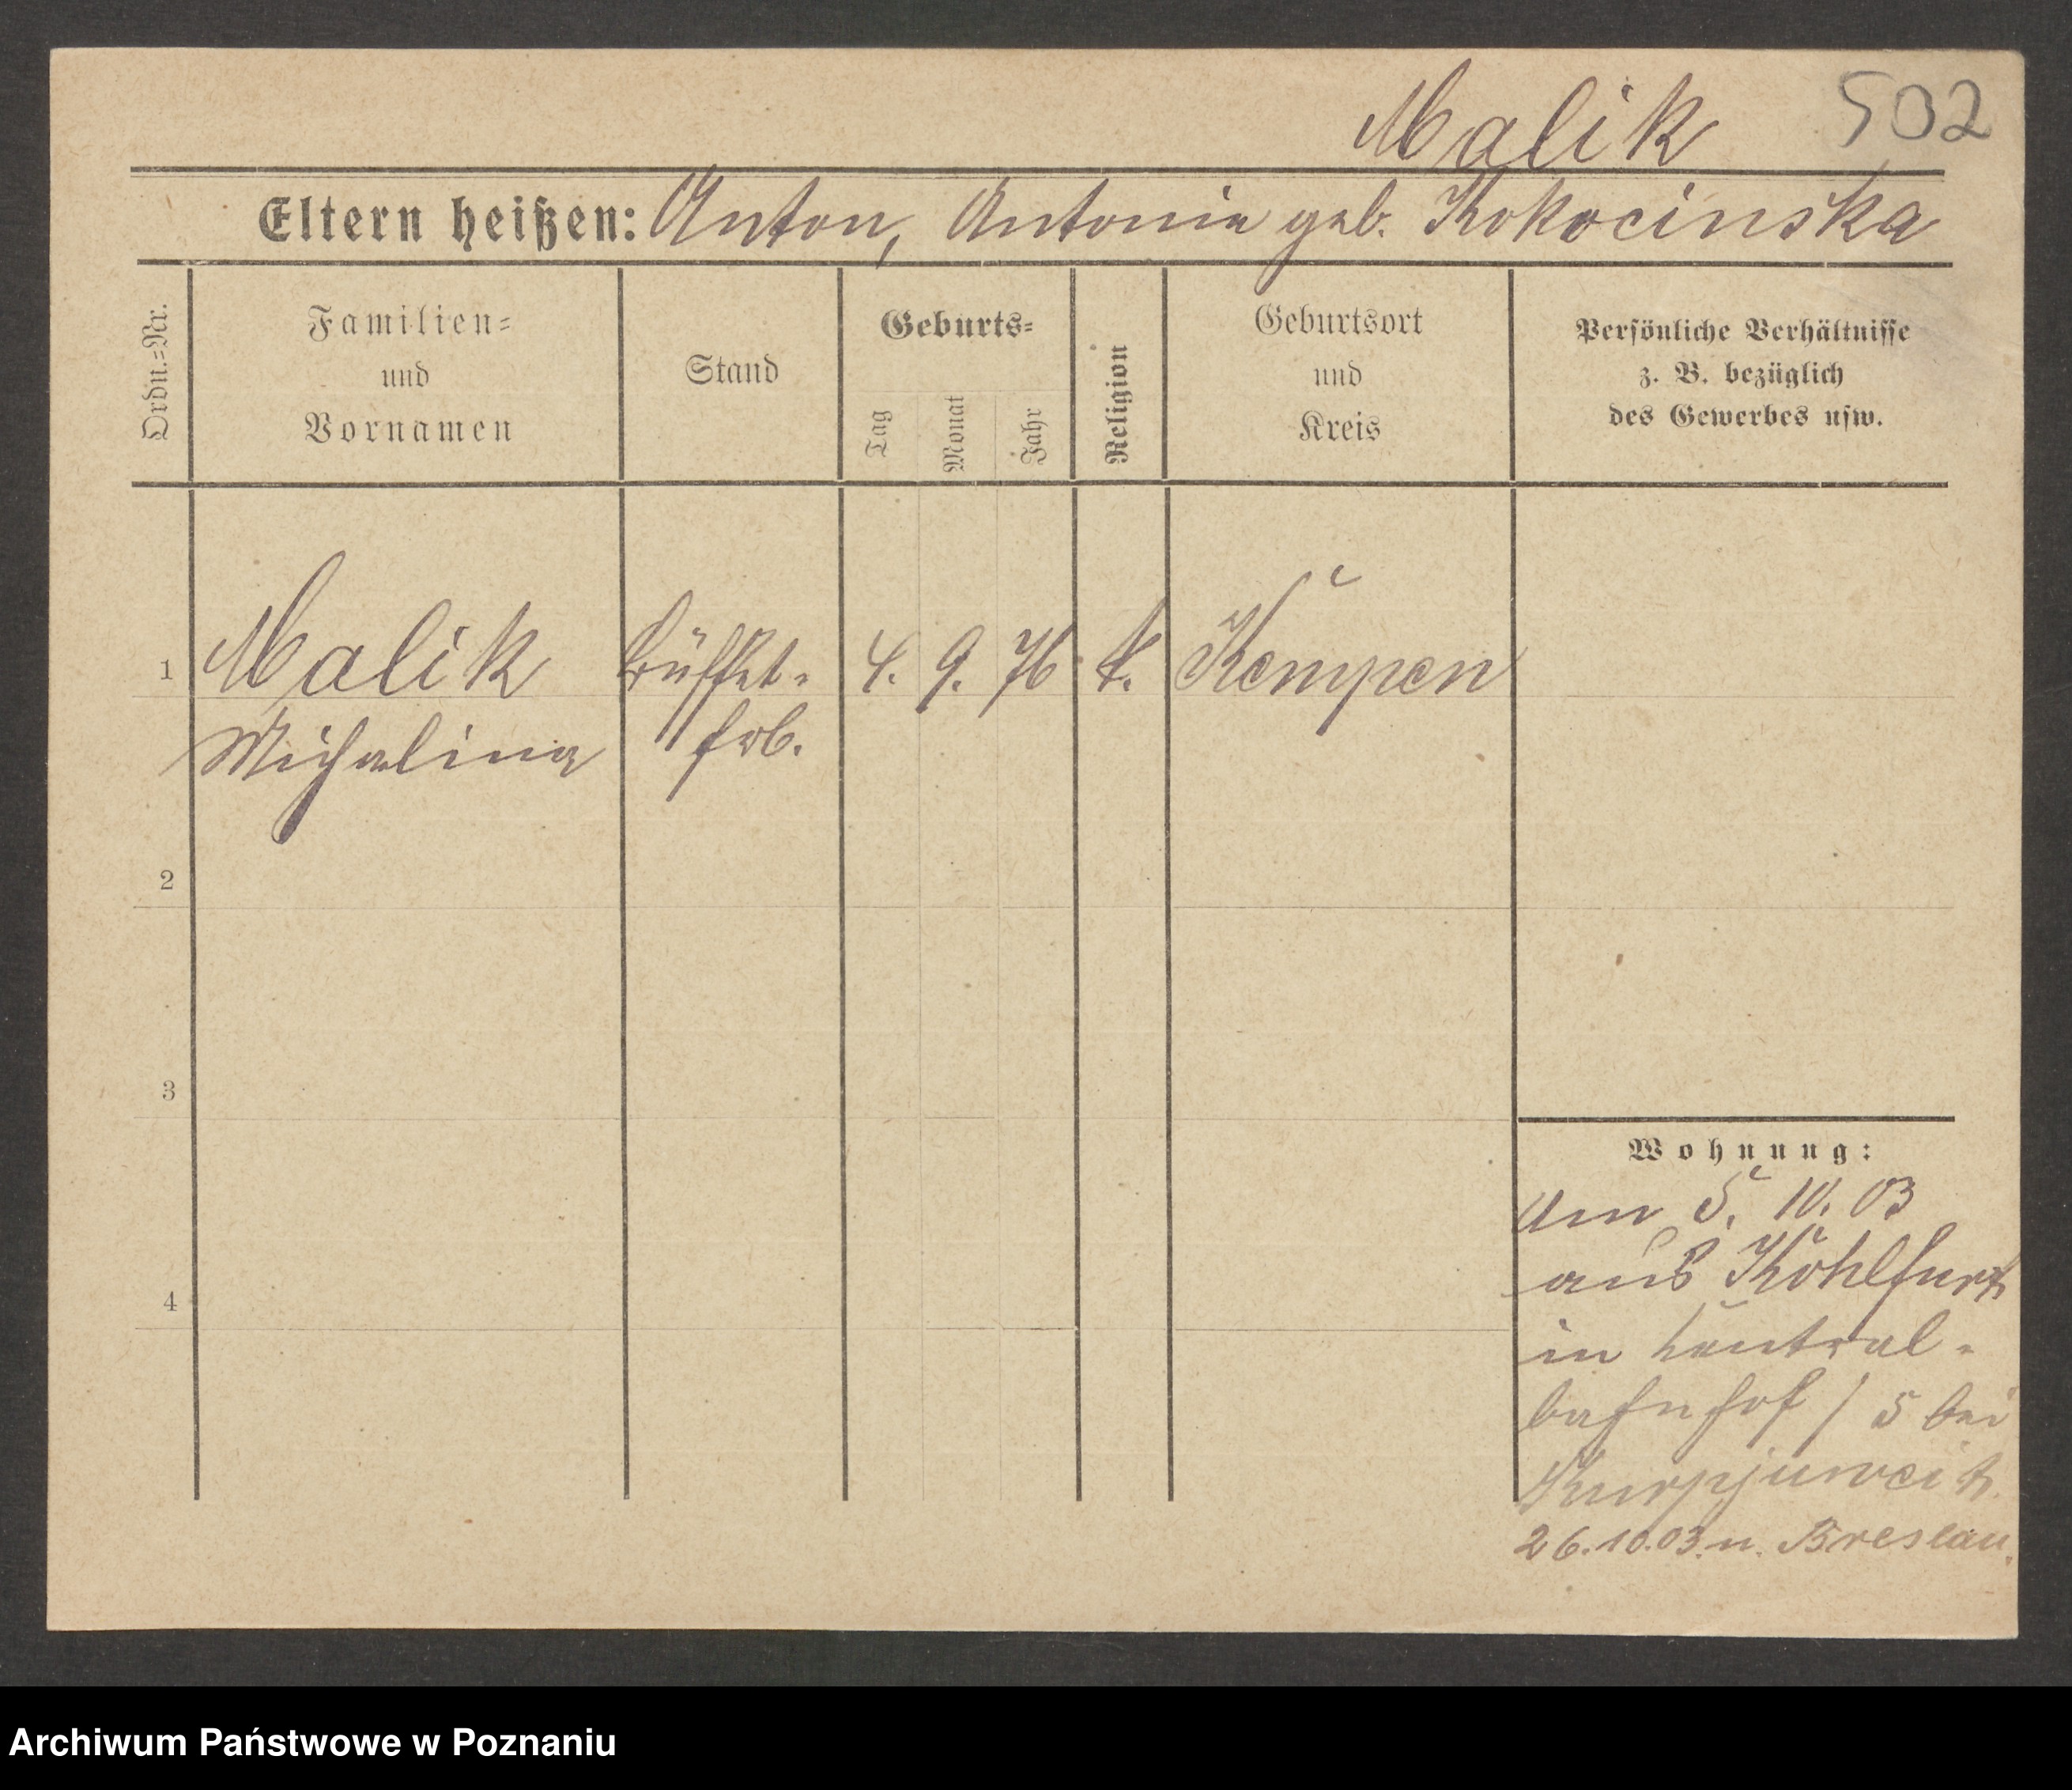 Malik 502
Eltern heißen: Anton, Antonie geb. Kokocinska
Ordn.=Nr.
Familien=
und
Vornamen
Stand
Geburts=
Tag
Monat
Jahr
Religion
Geburtsort
und
Kreis
Persönliche Verhältnisse
z. B. bezüglich
des Gewerbes usw.
1 Malik Büffet- 4. 9. 76 k. Kempen
Michalina
2
3
4
Wohnung:
Am 5. 10. 03
aus Kohlfurt
in Central-
bahnhof / 5 bei
Kurpjuweit
26.10.03. n. Breslau.
Archiwum Państwowe w Poznaniu